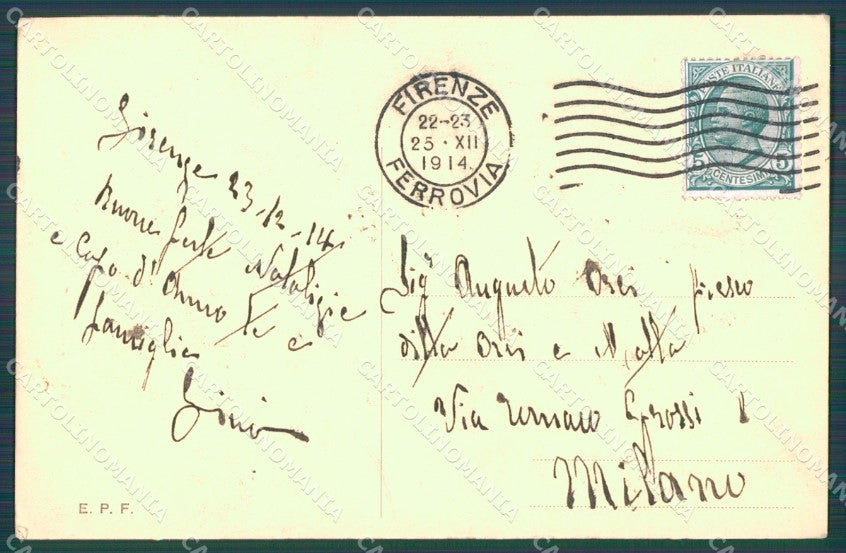 FIRENZE
22-23
25 · XII
1914
FERROVIA
POSTE ITALIANE
5 5
CENTESIMI
Firenze 23-12-14
Buone feste Natalizie
e Capo d'Anno Te e
famiglia
Gino
Sigr Augusto Orsi presso
ditta Orsi e Malta
Via Tomaso Grossi 8
Milano
E. P. F.
CARTOLINOMANIA